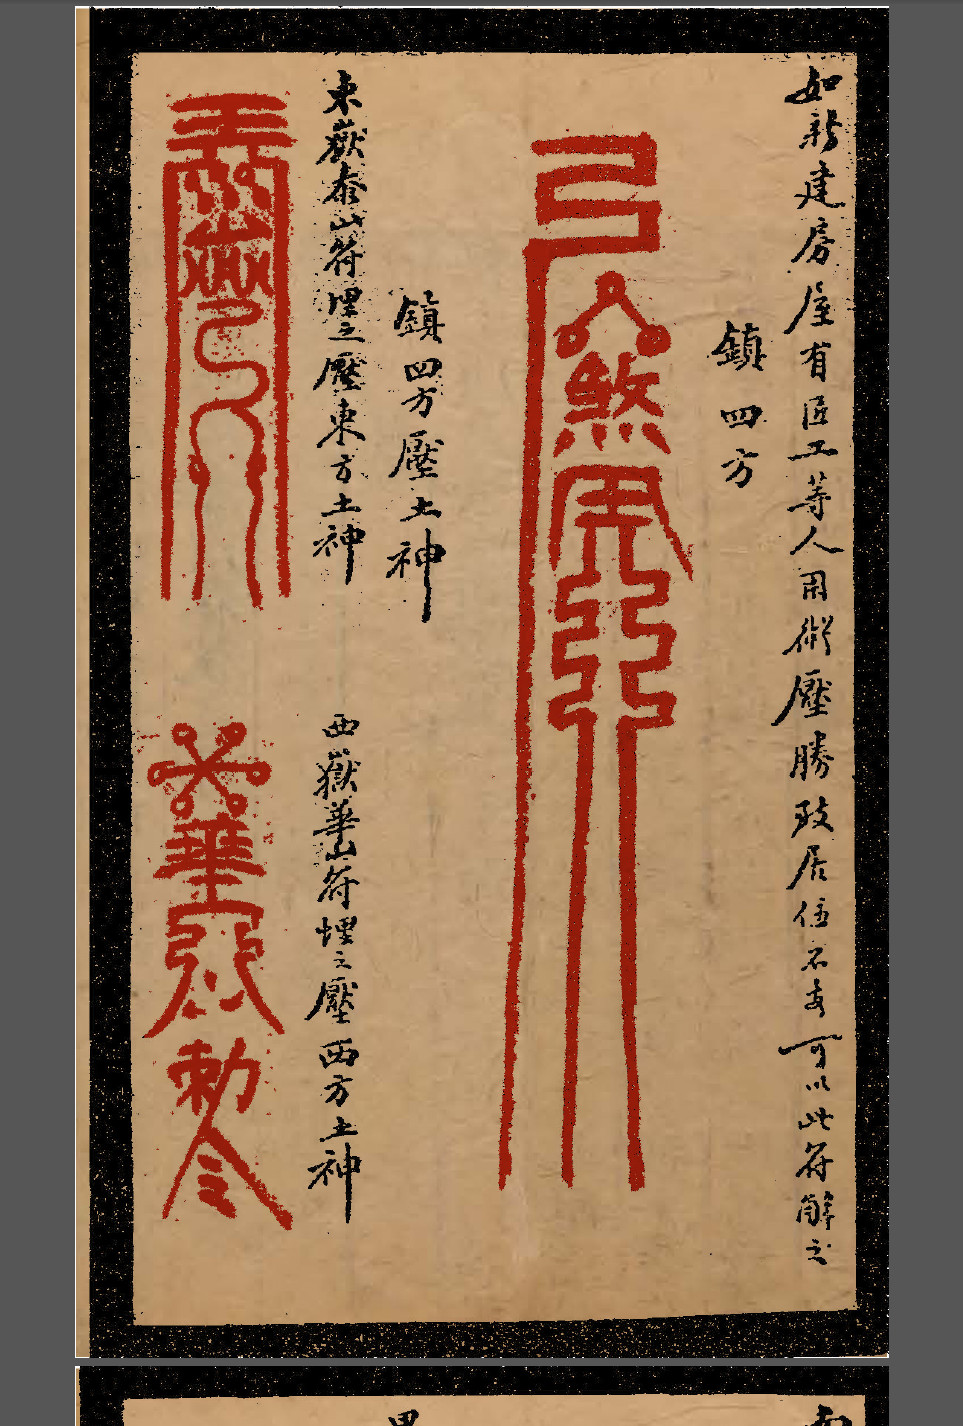 如新建房屋有匠工等人用術壓勝致居住不安可以此符解之
鎮四方
煞
鎮四方壓土神
東嶽泰山符埋之壓東方土神
西嶽華山符埋之壓西方土神
華
勅令